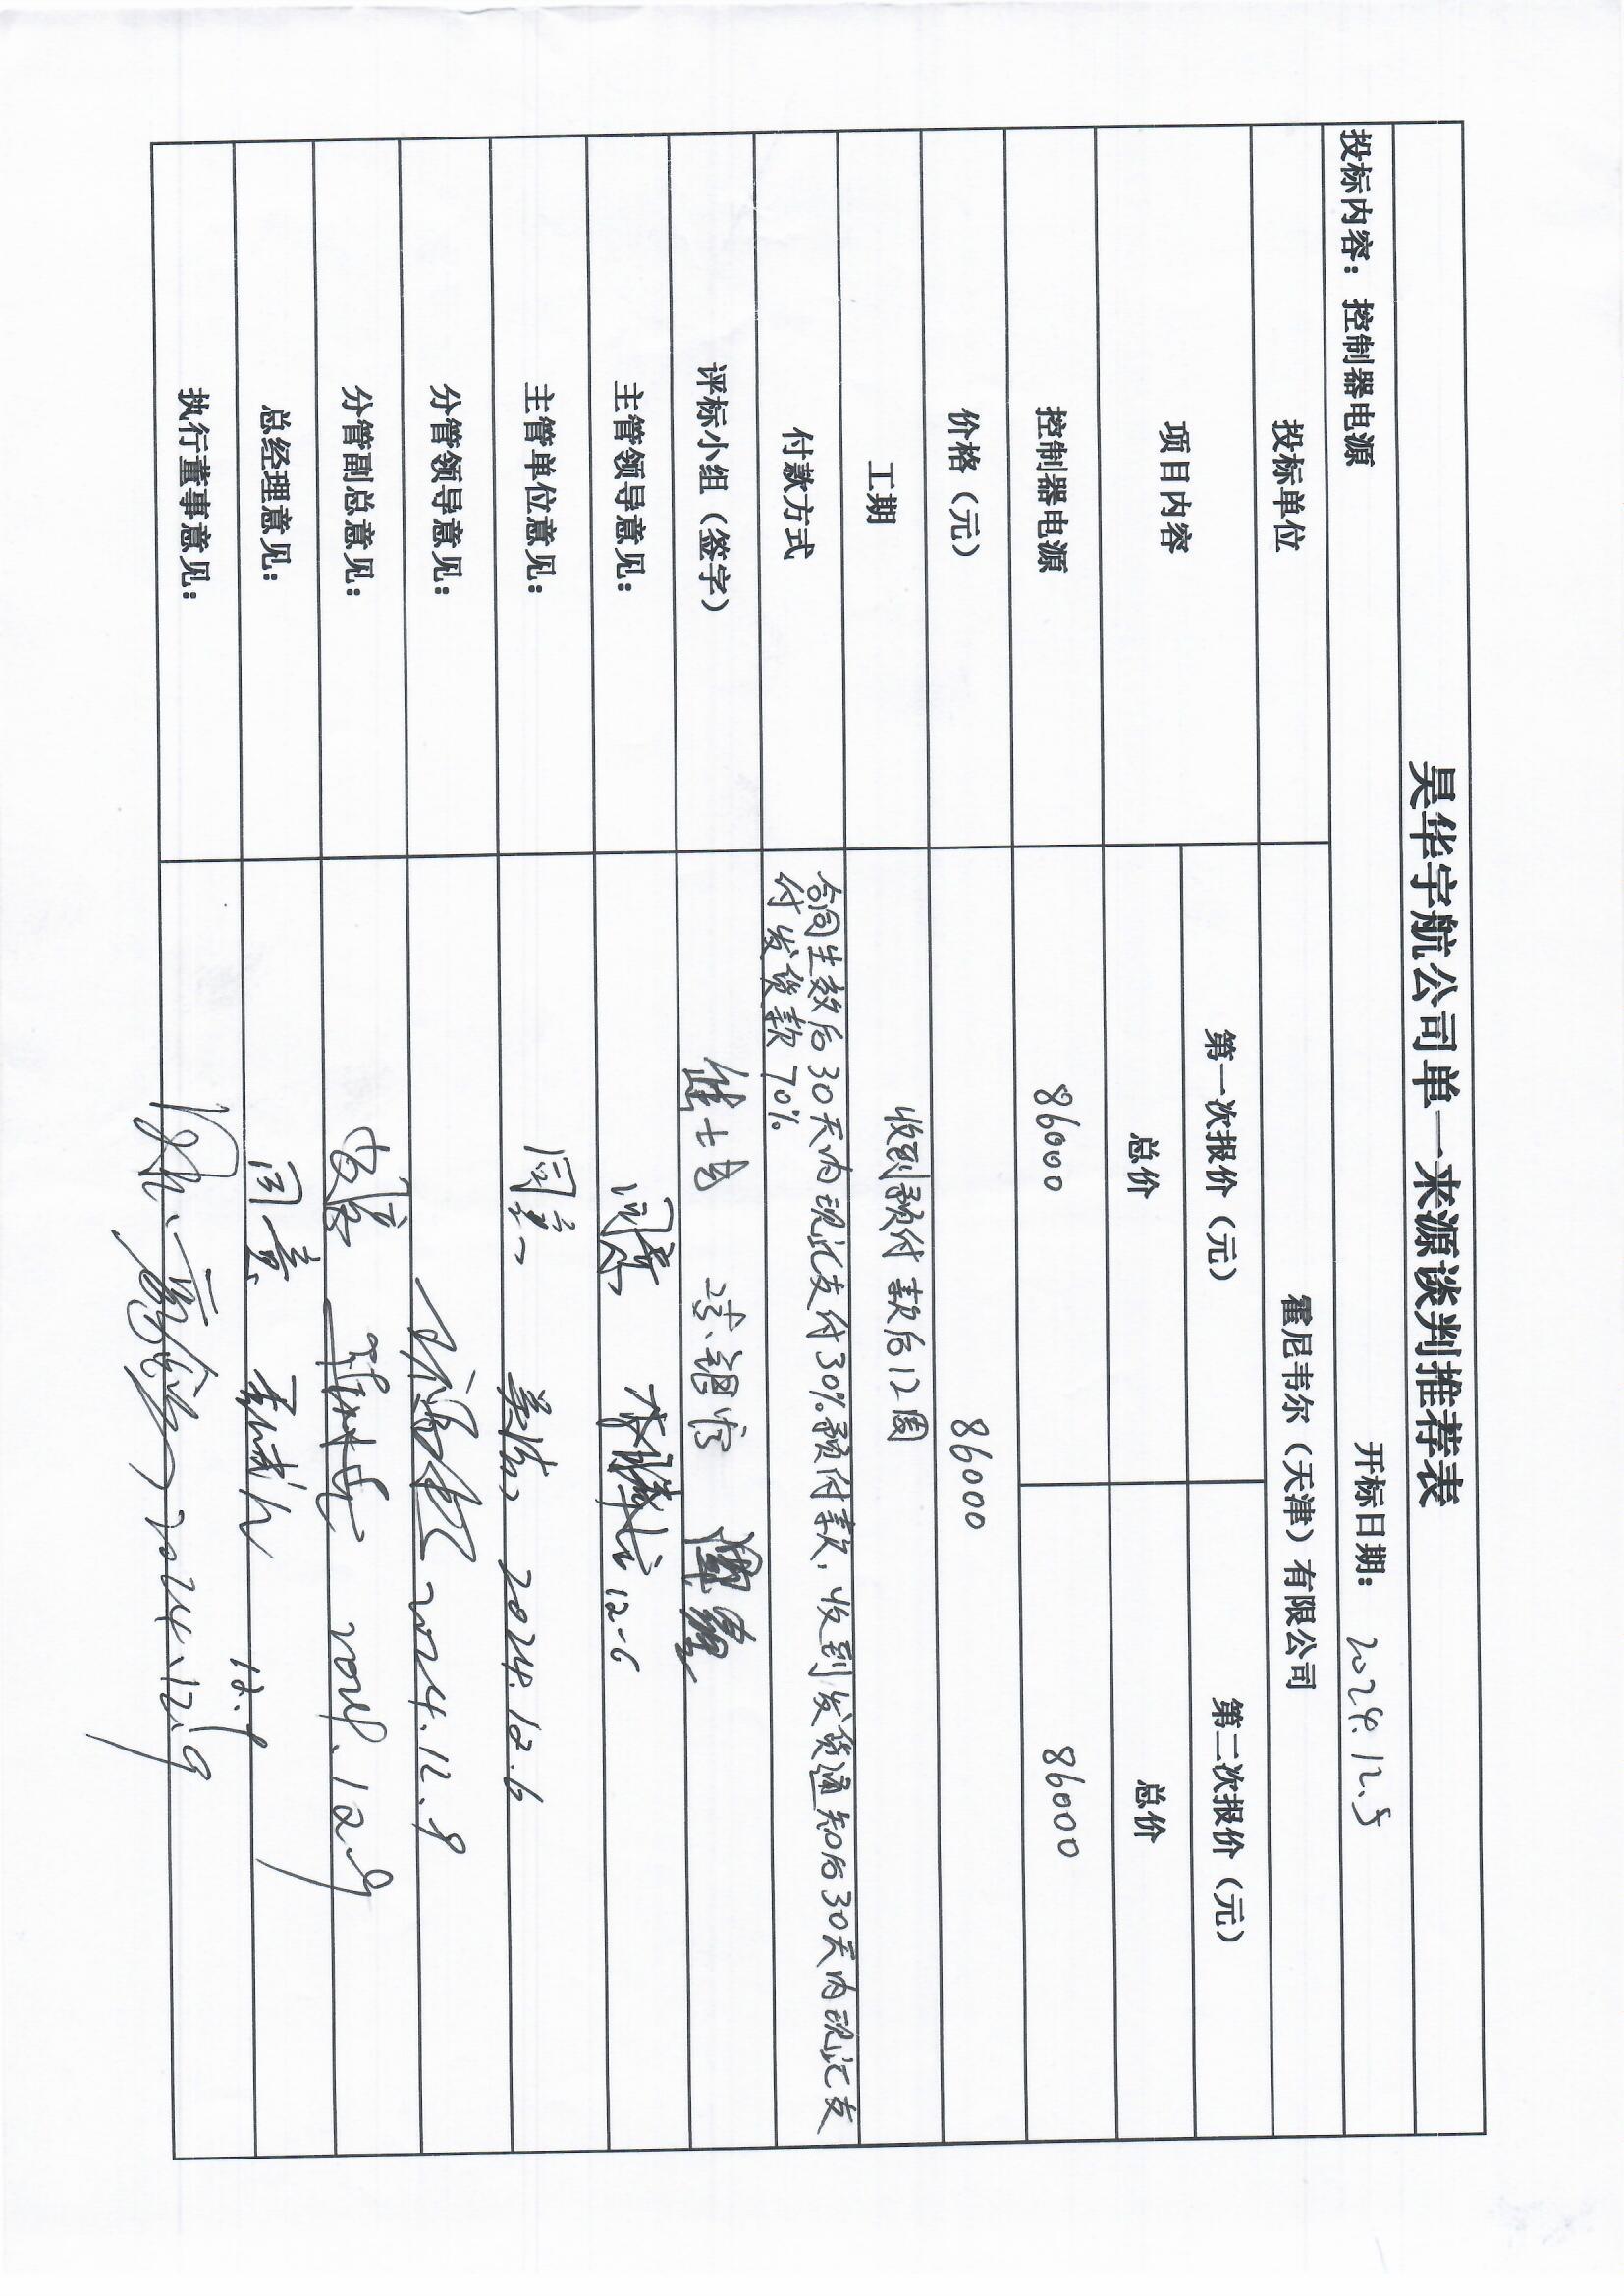 昊华宇航公司单一来源谈判推荐表
投标内容：控制器电源 开标日期： 2024.12.5
投标单位 霍尼韦尔（天津）有限公司
项目内容 第一次报价（元） 第二次报价（元）
总价 总价
控制器电源 86000 86000
价格（元） 86000
工期 收到预付款后12周
付款方式 合同生效后30天内现汇支付30%预付款，收到发货通知后30天内现汇支
付发货款70%
评标小组（签字）
主管领导意见： 同意 12-6
主管单位意见： 同意 2024.12.6
分管领导意见： 2024.12.9
分管副总意见： 同意 2024.12.9
总经理意见： 同意 12.9
执行董事意见： 2024.12.9